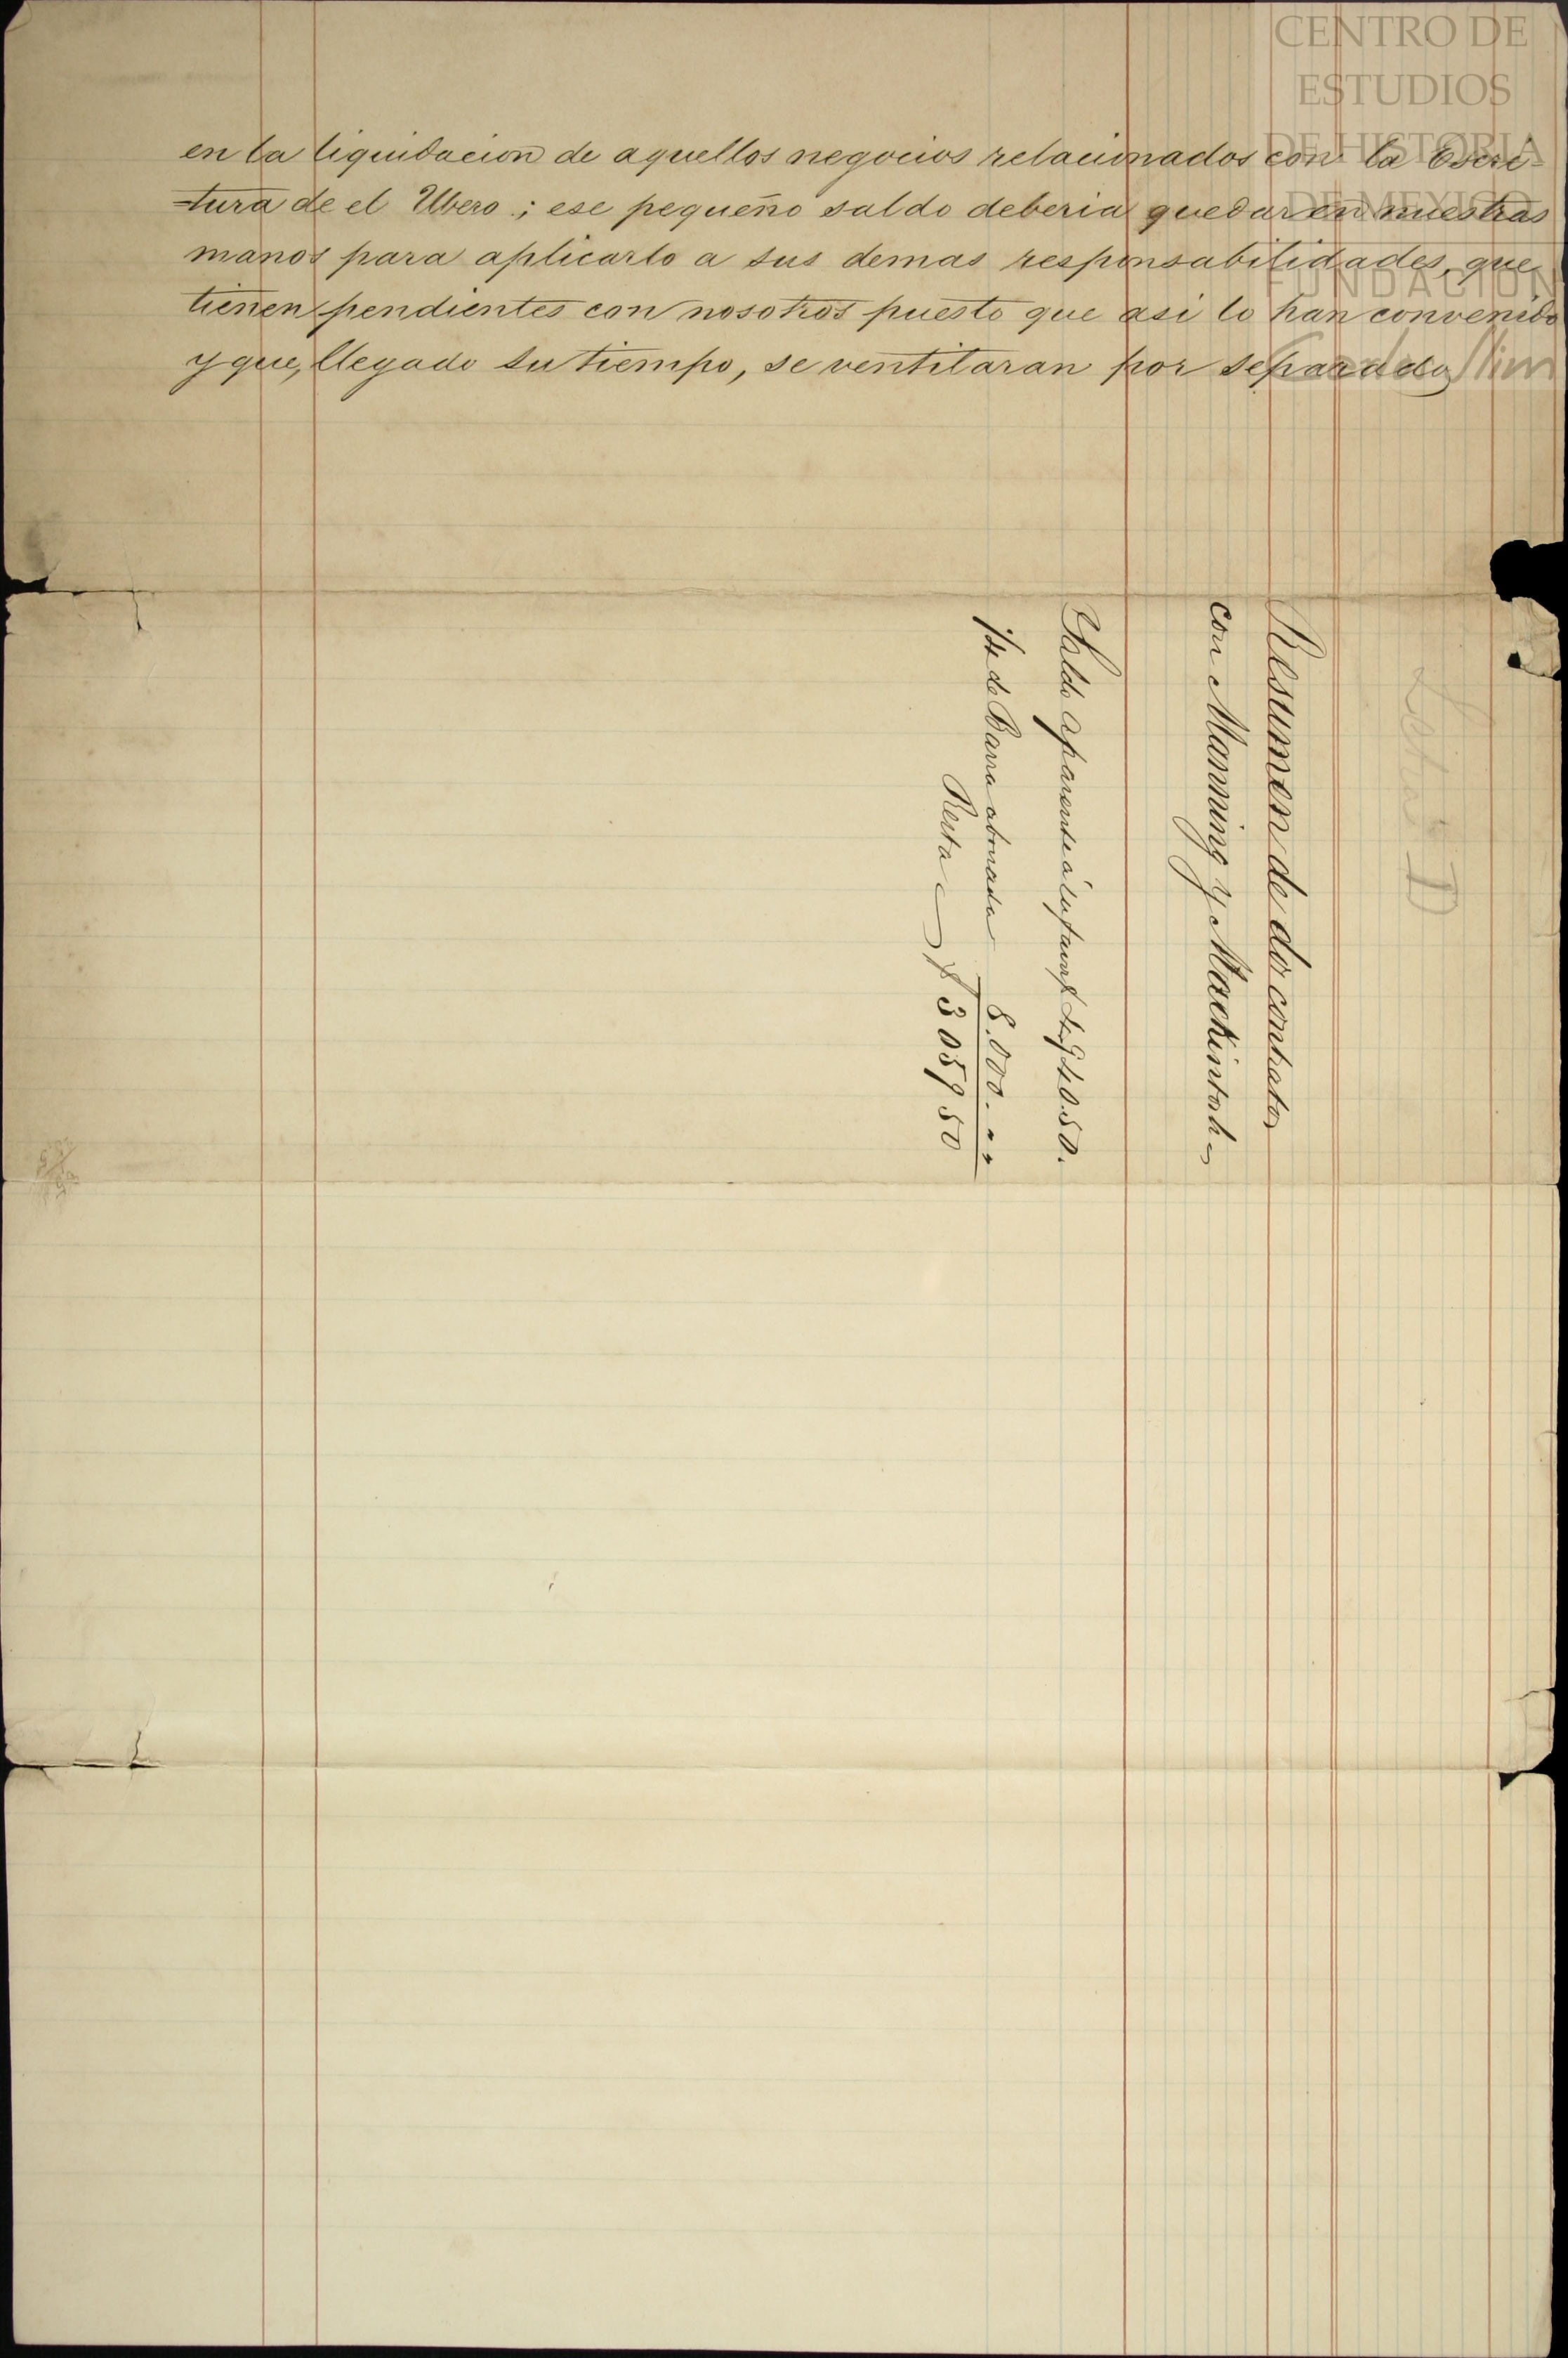 CENTRO DE
ESTUDIOS
DE HISTORIA
DE MEXICO
FUNDACION
Carlos Slim
en la liquidacion de aquellos negocios relacionados con la Escri-
=tura de el Ubero; ese pequeño saldo deberia quedar en nuestras
manos para aplicarlo a sus demas responsabilidades, que
tienen pendientes con nosotros puesto que asi lo han convenido
y que, llegado su tiempo, se ventilaran por separado
Resumen de dos contratos
con Manning y Mackintosh
Saldo aparente á su favor $ 4,940.50.
1/4 de Barra abonada 8.000. " "
Resta $ 3059 50